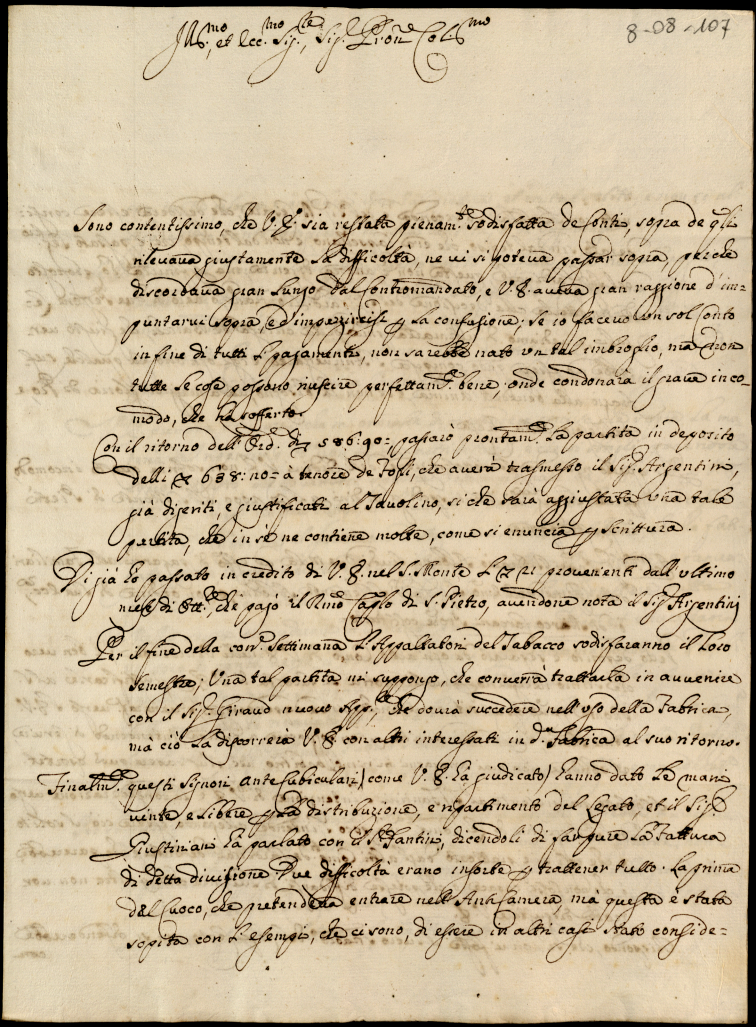 8-08-107
Ill.mo, et Ecc.mo Sig.re, Sig.r P.ron Col.mo
Sono contentissimo, che V. E. sia restata pienam.te sodisfatta de Conti, sopra de q.li
rilevava giustamente la difficoltà, ne vi si poteva passar sopra, perche
discordava gran lungo dal Contromandato, e V. E. aveva gran raggione d'im=
puntarvi sopra, ed La confusione; Se io facevo un sol Conto
in fine di tutti L pagamenti, non sarebbe nato un tal imbroglio, mà non
tutte le cose possono riuscire perfettam.e bene; onde condonarà il grave inco=
modo, che ha sofferto.
Con il ritorno dell'Ord. di 586:90= passarò prontam.e La partita in deposito
delli 638:no= à tenore de Fogli, che averà trasmesso il Sig.r Argentini,
già digeriti, e giustificati al Tavolino, si che sarà aggiustata una tale
partita, che in sè ne contiene molte, come si enuncia p scrittura.
Di già hò passato in credito di V. E. nel S. Monte L 21 provenienti dall'ultimo
mese di Ott.re, che pagò il R.mo Cap.lo di S. Pietro, avendone nota il Sig.r Argentini
Per il fine della corr.e Settimana, L'Appaltatori del Tabacco sodisfaranno il Loro
Semestre; Una tal partita mi suppongo, che converrà trattarla in avvenire
con il Sig.r Giraud nuovo App.re, che dovrà succedere nell'uso della Fabrica,
mà ciò La discorrerà V. E. con altri interessati in d.a Fabrica al suo ritorno.
Finalm.e questi Signori Ante Cubiculari (come V. E. hà giudicato) hanno dato Le mani
vinte, e Libere p La distribuzione, e ripartimento del Legato, et il Sig.r
Giustiniani hà parlato con il S.r Santini, dicendoli di La Fattura
di detta divisione. Due difficoltà erano insorte p trattener tutto. La prima
del Cuoco, che pretendeva entrare nell'Anti Camera, mà questa è stata
sopita con L'esempi, che ci sono, di essere in altri casi stato conside=